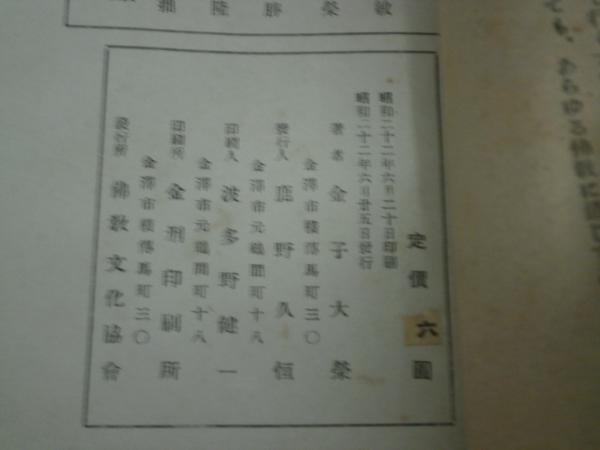 敏
榮
勝
隆
定價 六 圓
昭和二十二年六月二十日印刷
昭和二十二年六月廿五日發行
著者 金子大榮
金澤市穚塲馬町三〇
發行人 鹿野久恒
金澤市元鶴間町十八
印刷人 波多野健一
金澤市元鶴間町十八
印刷所 金刑印刷所
金澤市 馬町三〇
發行所 佛敎文化協會
あらゆる佛敎に